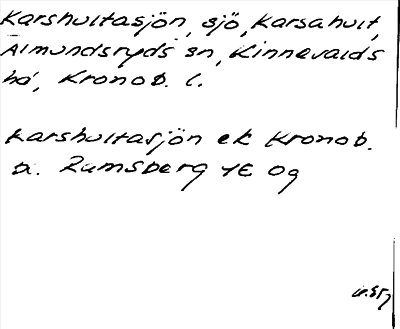 Karshultasjön, sjö, Karsahult,
Almundsryds sn, Kinnevalds
hd, Kronob. l.
Karshultasjön ek Kronob.
a. Ramsberg 4E Og